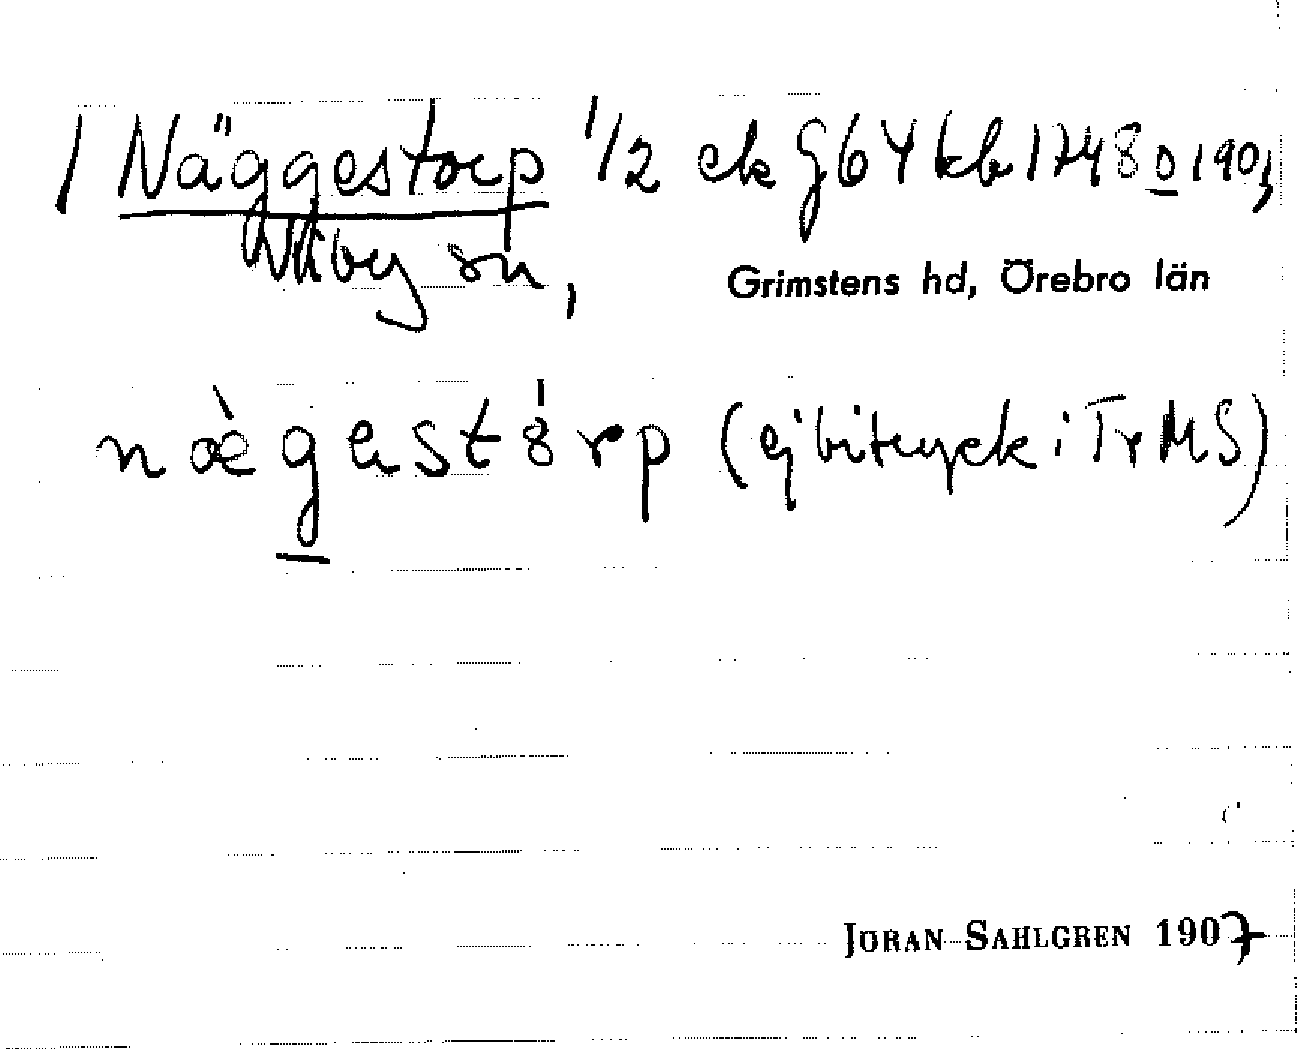 / Näggestorp 1/2 ek G64 kb 1748 o 190
Viby sn,
Grimstens hd, Örebro län
næ̀gestórp (ej bitryck i TrMS)
JÖRAN SAHLGREN 1907